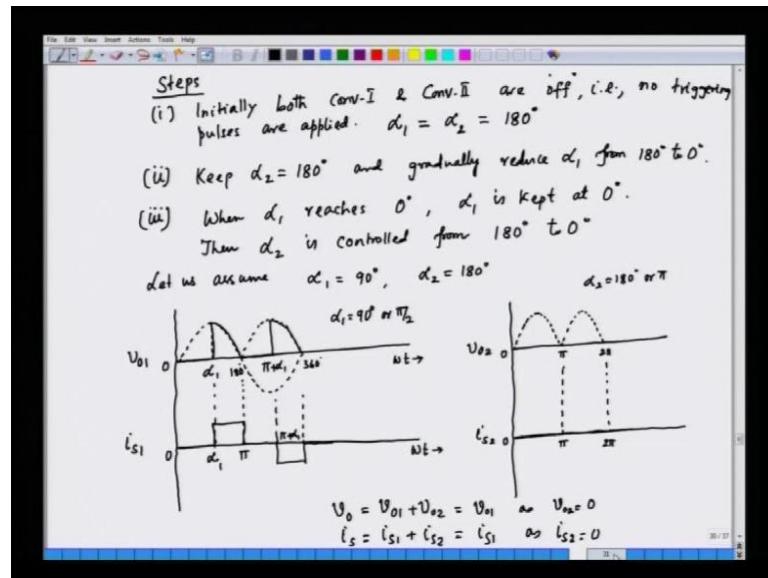 File Edit View Insert Actions Tools Help
Steps
(i) Initially both Conv-I & Conv-II are "off", i.e., no triggering
pulses are applied. α₁ = α₂ = 180°
(ii) Keep α₂ = 180° and gradually reduce α₁ from 180° to 0°.
(iii) When α₁ reaches 0°, α₁ is kept at 0°.
Then α₂ is controlled from 180° to 0°
Let us assume α₁ = 90°, α₂ = 180°
α₂ = 180° or π
α₁ = 90° or π/2
V₀₁ 0 α₁ 180° π+α₁ 360° ωt→
V₀₂ 0 π 2π
i_S1 0 α₁ π π+α₁ ωt→
i_S2 0 π 2π
V₀ = V₀₁ + V₀₂ = V₀₁ as V₀₂ = 0
i_S = i_S1 + i_S2 = i_S1 as i_S2 = 0
30/37
31